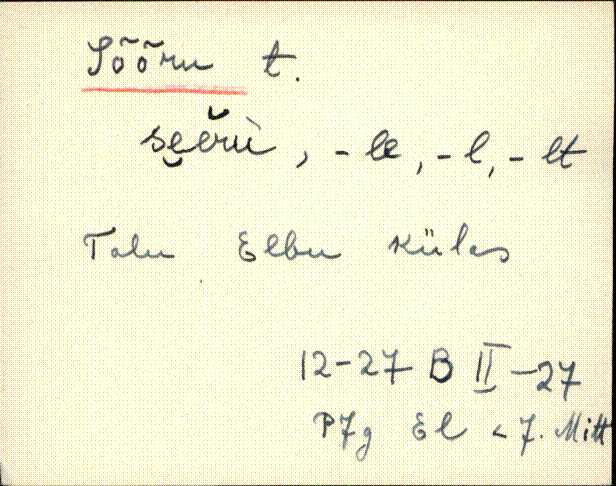 Sõõru t.
se̮e̮rù, -le, -l, -lt
Talu Elbu külas
12-27 B II-27
P7g El < J. Mitt